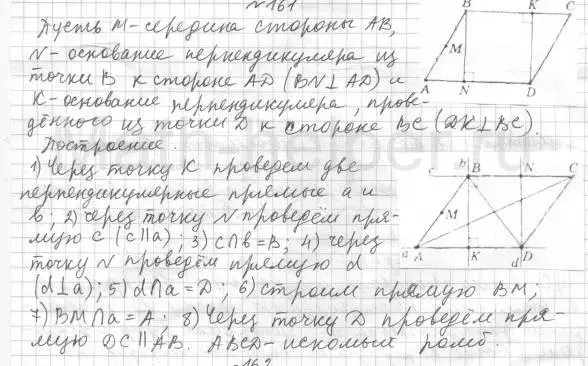 №161
Пусть M-середина стороны AB,
N-основание перпендикуляра из
точки B к стороне AD (BN⊥AD) и
K-основание перпендикуляра, прове-
дённого из точки D к стороне BC (DK⊥BC).
Построение.
1) Через точку K проведем две
перпендикулярные прямые a и
b; 2) через точку N проведём пря-
мую c (c∥a); 3) c∩b=B; 4) через
точку N проведём прямую d
(d⊥a); 5) d∩a=D; 6) строим прямую BM;
7) BM∩a=A; 8) Через точку D проведём пря-
мую DC∥AB. ABCD-искомый ромб.
B K C
M
A N D
c b B N C
M
a A K d D
162